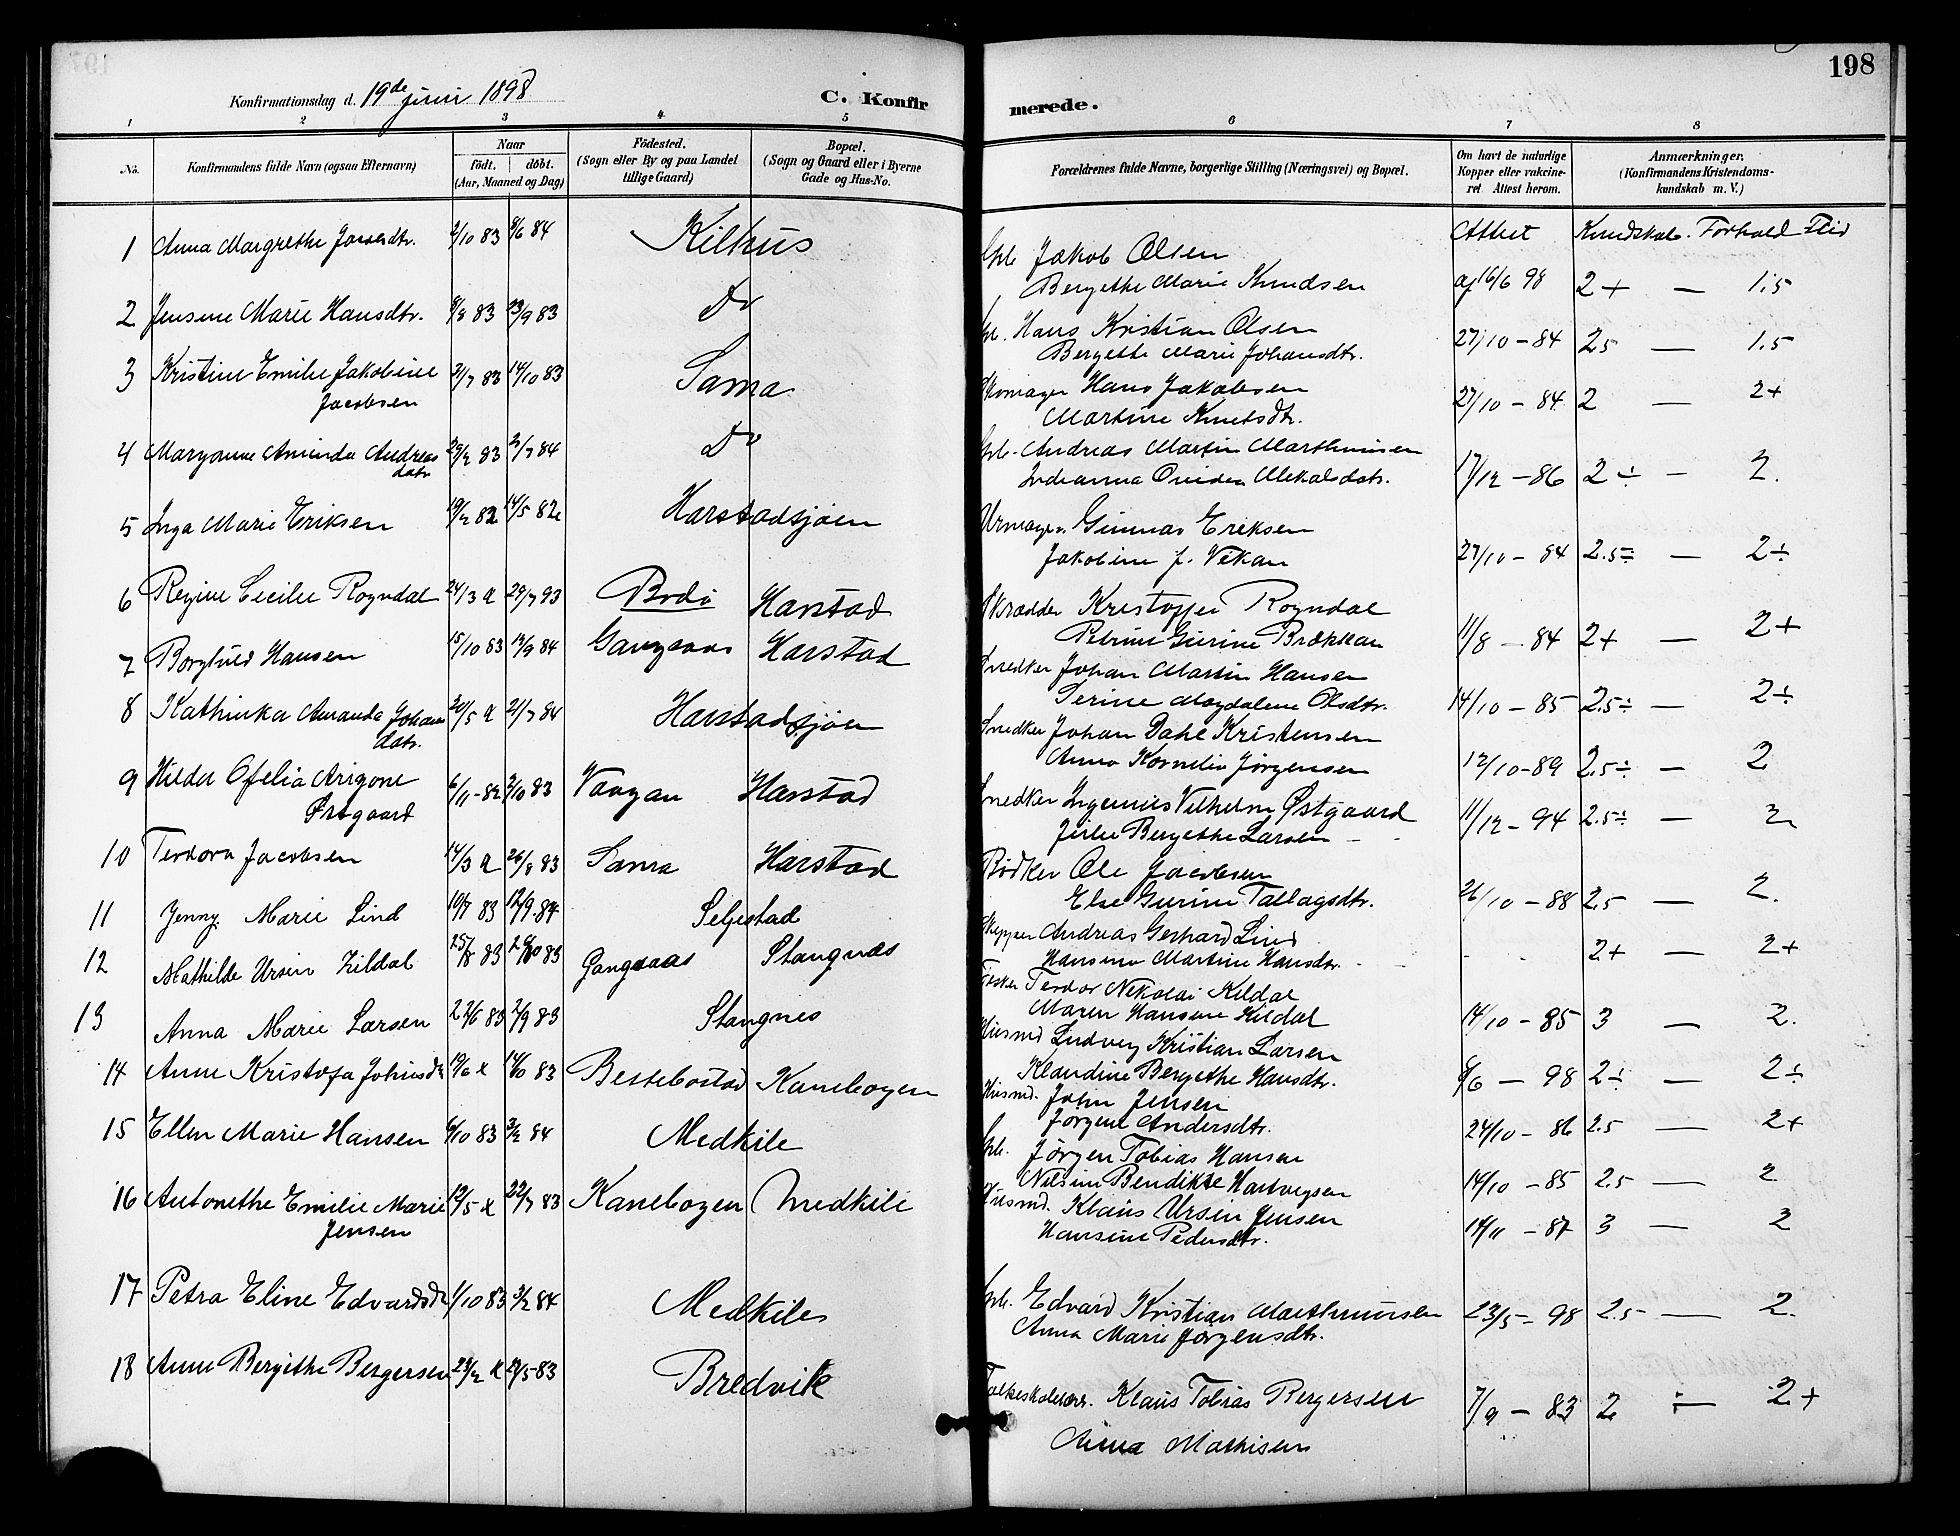 Konfirmationsdag d. 19de juni 1898
C. Konfir
merede.
198
1 2 3 4 5 6 7 8
No.
Konfirmandens fulde Navn (ogsaa Efternavn)
Naar
födt. döbt.
(Aar, Maaned og Dag)
Födested.
(Sogn eller By og paa Landet
tillige Gaard)
Bopæl.
(Sogn og Gaard eller i Byerne
Gade og Hus-No.
Forældrenes fulde Navne, borgerlige Stilling (Næringsvei) og Bopæl.
Om havt de naturlige
Kopper eller vakcine-
ret Attest herom.
Anmærkninger.
(Konfirmandens Kristendoms-
kundskab m. V.)
Attest Kundskab. Forhold Flid
1 Anna Margrethe 2/10 83 8/6 84 Kilhus
Jakob Olsen
Bergethe Marie Knudsen af 16/6 98 2+ — 1.5
2 Jensine Marie Hansdtr. 9/8 83 23/9 83 Do
Hans Kristian Olsen
Bergethe Marie Johansdtr. 27/10 - 84 2.5 — 1.5
3 Kristine Emilie Jakobine 2/7 83 14/10 83 Sama
Jacobsen
Skomager Hans Jakobsen
Martine Knutsdtr. 27/10 - 84 2 — 2+
4 Maryanne Aminda Andreas 29/2 83 3/7 84 Do
datr
Andreas Martin Marthinussen
17/12 - 86 2÷ — 2.
5 Inga Marie Eriksen 19/2 82 14/5 82 Harstadsjøen
Urmager Gunnar Eriksen
Jakobine f. Vekan 27/10 - 84 2.5÷ — 2÷
6 Regine Cecilie Rogndal 24/3 29/7 93 Bodø Harstad
Skrædder Kristoffer Rogndal
Petrine Gurine Brækkan 11/8 - 84 2+ — 2+
7 Borghild Hansen 15/10 83 14/9 84 Gangsaas Harstad
Snedker Johan Martin Hansen
Serine Magdalene Olsdtr. 14/10 - 85 2.5÷ — 2÷
8 Kathinka Amanda Johans 20/5 21/7 84 Harstadsjøen
datr.
Snedker Johan Dahl Kristensen
Anna Kornelia Jørgensen 12/10 - 89 2.5÷ — 2
9 Hilda Ofelia Arigone 6/11 - 82 7/10 83 Vaagan Harstad
Østgaard
Snedker Vilhelm Østgaard
Bergethe Larsen 11/12 - 94 2.5÷ — 2
10 Teodora Jacobsen 14/3 26/8 83 Sama Harstad
Bødker Ole Jacobsen
Else Gurine Tallagsdtr. 26/10 - 88 2.5 — 2.
11 Jenny Marie Lind 10/7 83 12/9 84 Seljestad
Skipper Andreas Gerhard Lind
Hansine Martine Hansdtr. 2+ — 2+
12 Mathilde Ursin Kildal 25/8 83 83 Gangsaas Stangnæs
Fisker Teodor Nikolai Kildal
Maren Hansine Kildal 14/10 - 85 3 — 2.
13 Anna Marie Larsen 22/6 83 2/9 83 Stangnes
Husmd Ludvig Kristian Larsen
Klaudine Bergethe Hansdtr. 8/6 - 98 2÷ — 2÷
14 Anne Kristofa 19/6 14/10 83 Bessebostad Kanebogen
Husmd. John Jensen
Jørgine Andersdtr. 24/10 - 86 2.5 — 2+
15 Ellen Marie Hansen 6/10 83 3/2 84 Medkile
Jørgen Tobias Hansen
Nilsine Bendikte Hartvigsen 14/10 - 85 2.5 — 2
16 Antonethe Emilie Marie 12/5 22/7 83 Kanebogen Medkile
Jensen
Husmd. Klaus Ursin Jensen
Hansine Pedersdtr. 14/11 - 87 3 — 2
17 Petra Eline 1/10 83 3/2 84 Medkile
Edvard Kristian Marthinussen
Anna Marie Jørgensdtr. 23/5 - 98 2.5 — 2.
18 Anne Bergithe Bergersen 23/2 27/5 83 Bredvik
Klaus Tobias Bergersen
Anna Mathisen 7/9 - 83 2 ÷ 2+